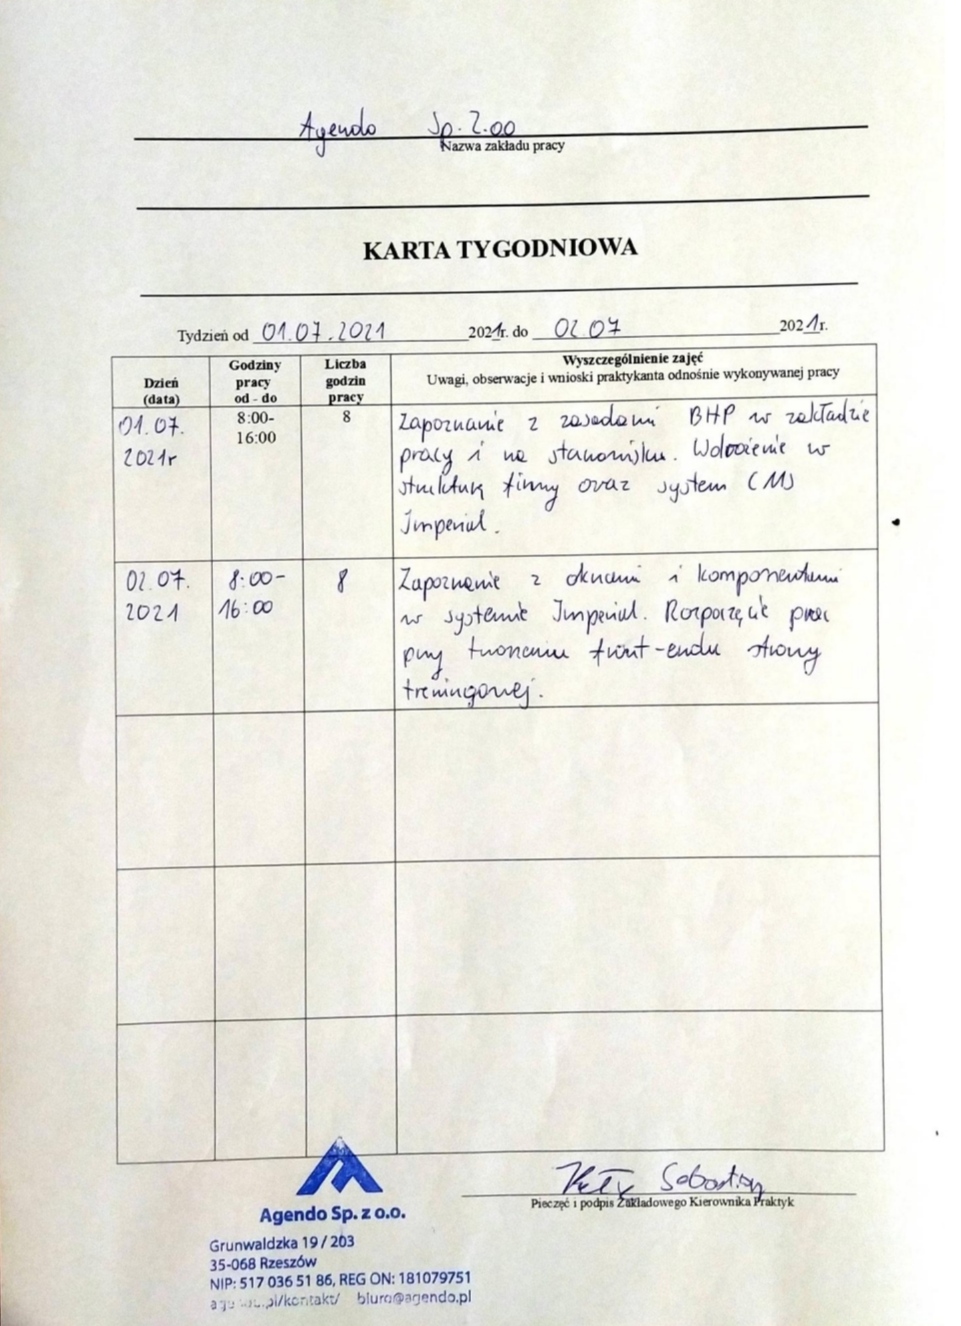 Agendo Sp. Z.oo
Nazwa zakładu pracy
KARTA TYGODNIOWA
Tydzień od 01.07.2021 2021r. do 02.07 2021r.
Dzień
(data)
Godziny
pracy
od - do
Liczba
godzin
pracy
Wyszczególnienie zajęć
Uwagi, obserwacje i wnioski praktykanta odnośnie wykonywanej pracy
01.07.
2021r
8:00-
16:00
8
Zapoznanie z zasadami BHP w zakładzie
pracy i na stanowisku. Wdrożenie w
strukturę firmy oraz system CMS
Imperial.
02.07.
2021
8:00-
16:00
8
Zapoznanie z oknami i komponentami
w systemie Imperial. Rozpoczęcie prac
przy tworzeniu front-endu strony
treningowej.
Sebastian
Pieczęć i podpis Zakładowego Kierownika Praktyk
Agendo Sp. z o.o.
Grunwaldzka 19 / 203
35-068 Rzeszów
NIP: 517 036 51 86, REG ON: 181079751
.pl/kontakt/ biuro@agendo.pl